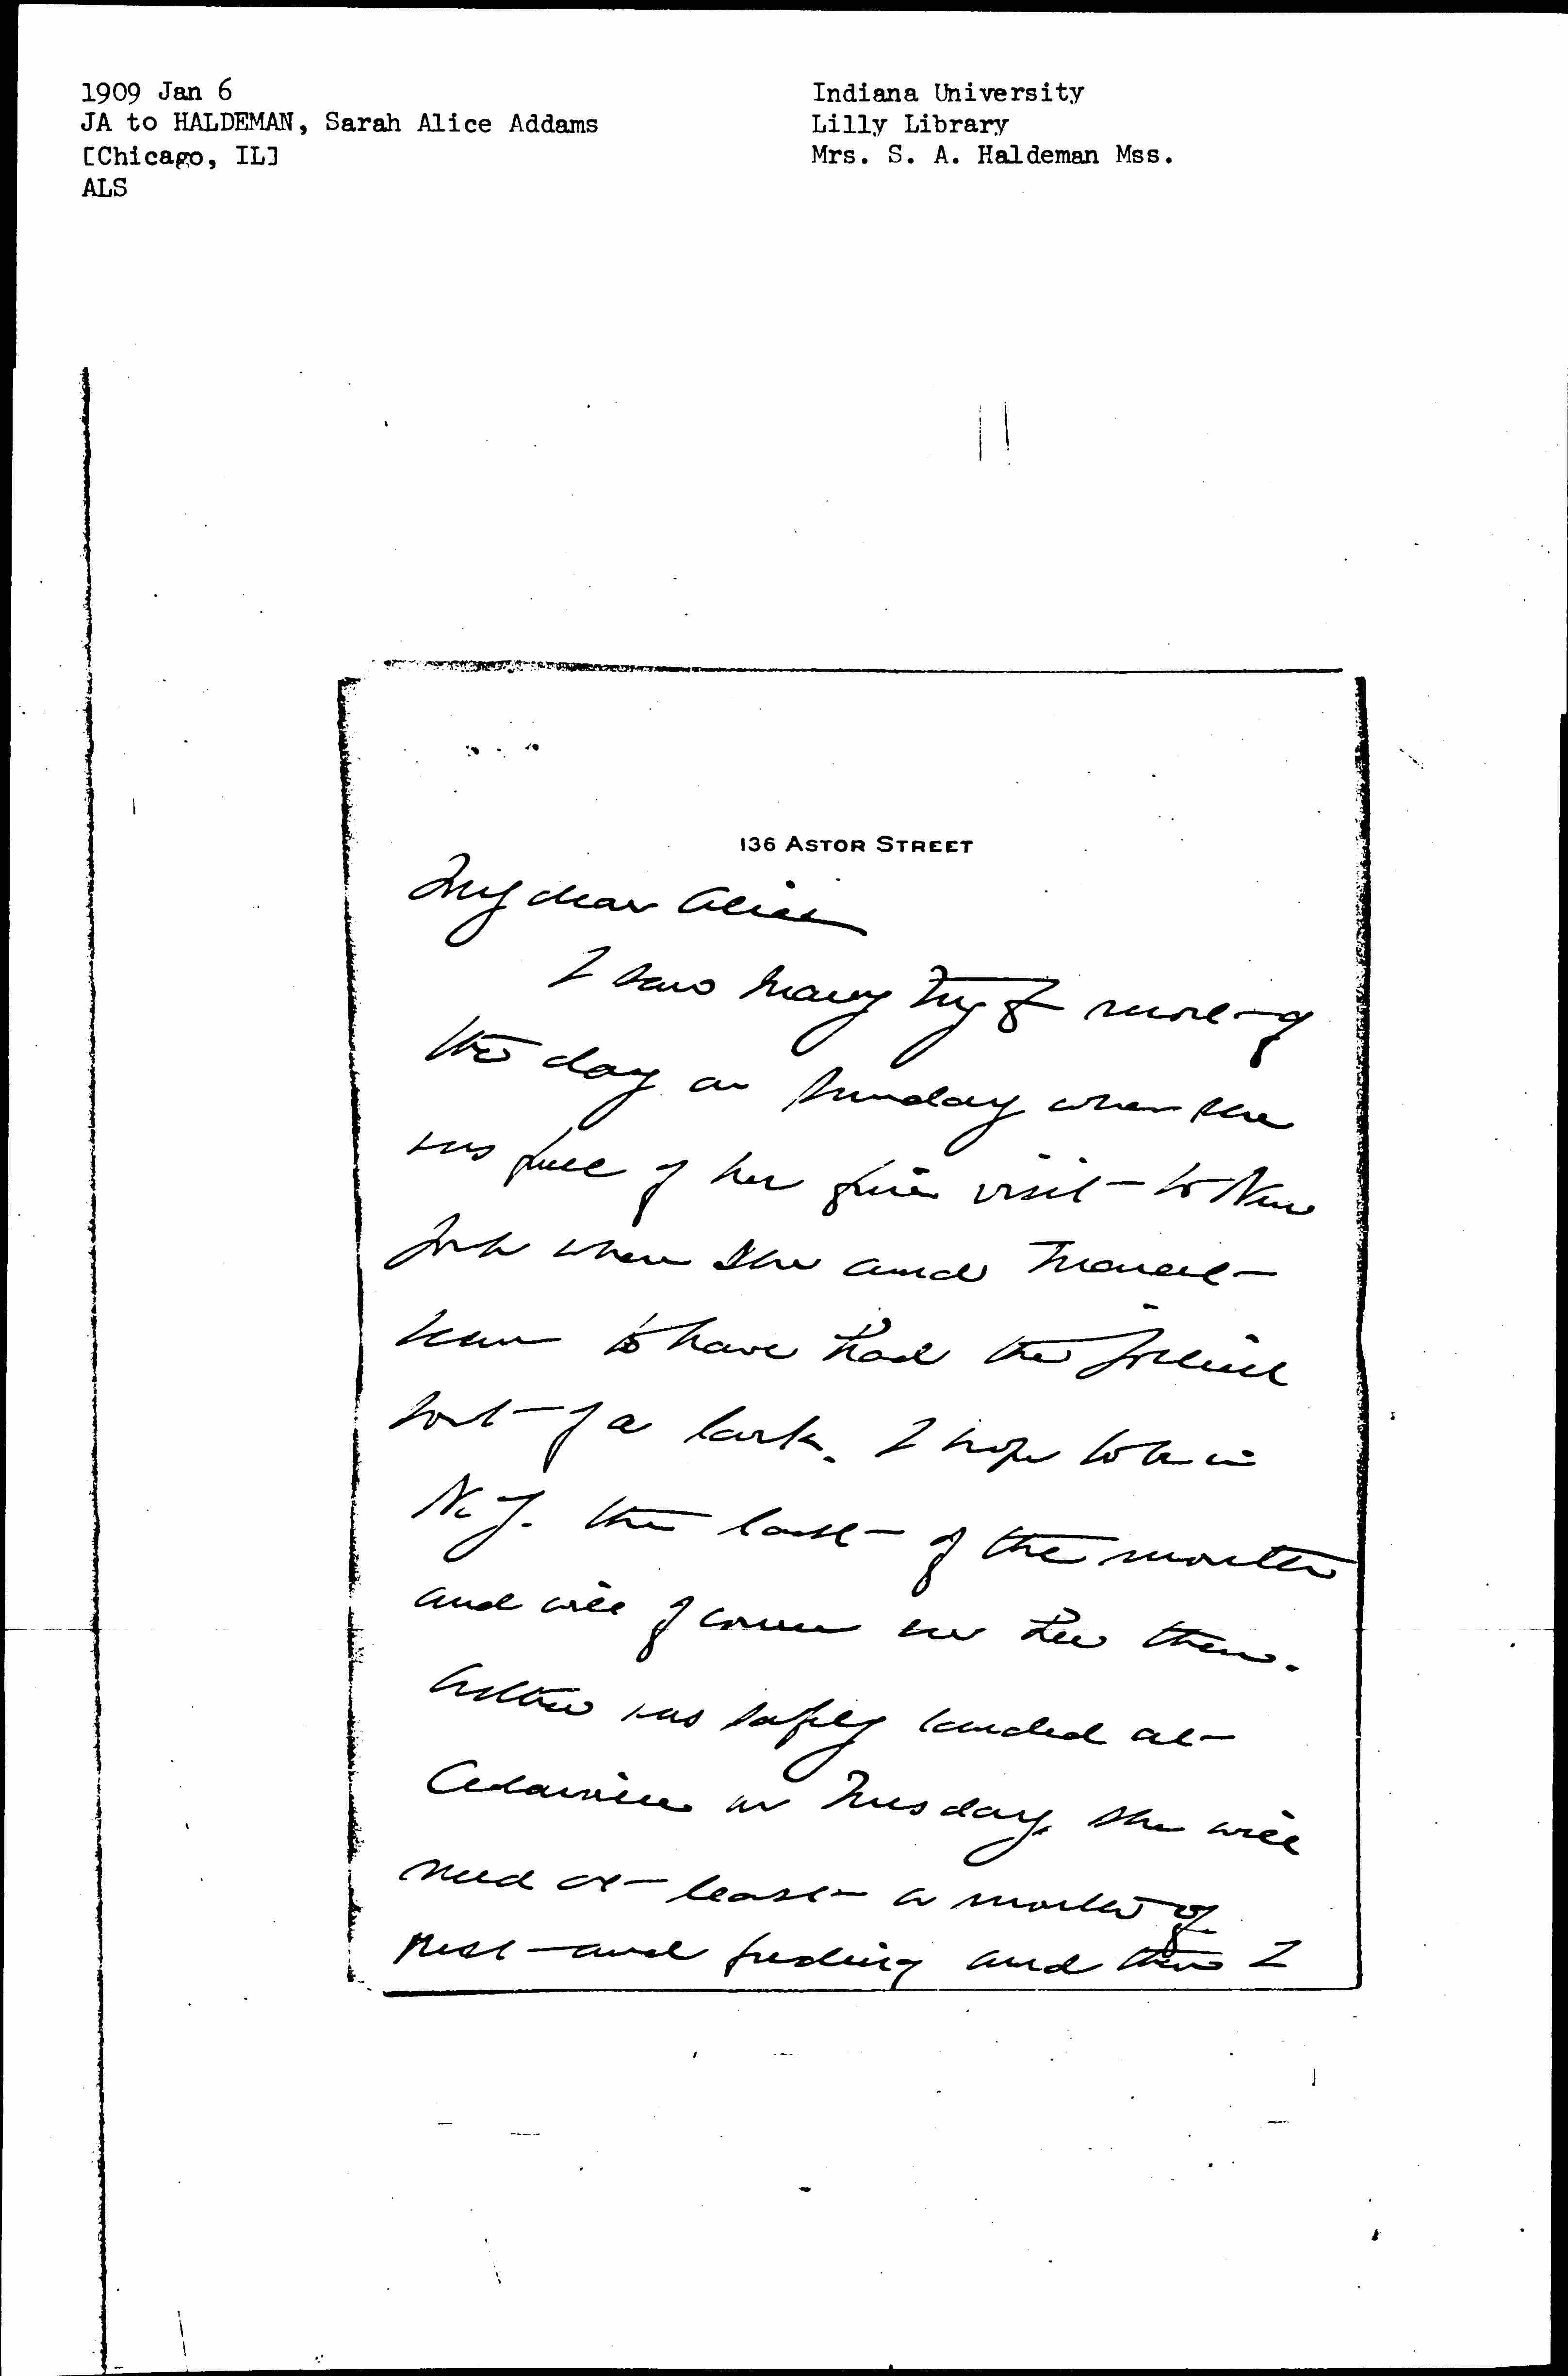 1909 Jan 6
JA to HALDEMAN, Sarah Alice Addams
[Chicago, IL]
ALS
Indiana University
Lilly Library
Mrs. S. A. Haldeman Mss.
136 ASTOR STREET
My dear Alice
I saw Mary for most of
the day on Sunday when she
was full of her fine visit to New
York where she and Marcet
seem to have had the jolliest
sort of a lark. I hope to be in
N.Y. the last of the month
and will of course see her then.
was safely landed at
Cedarville on Tuesday, she will
need at least a month of
rest and feeding and then I